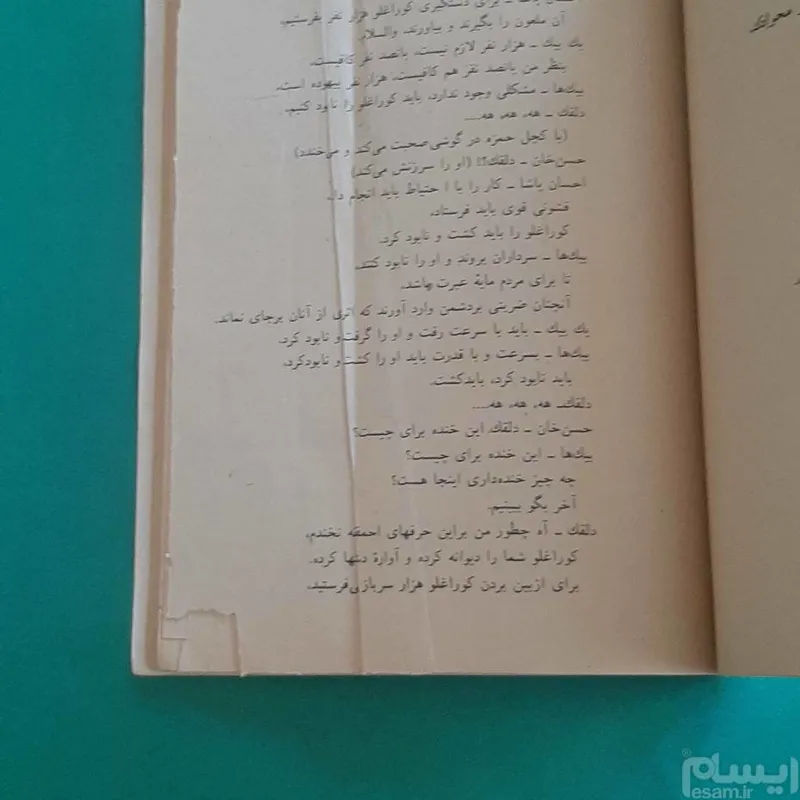 احسان پاشا ـ برای دستگیری کوراغلو هزار نفر بفرستیم.
آن ملعون را بگیرند و بیاورند، والسلام.
یك بیك ـ هزار نفر لازم نیست، پانصد نفر کافیست.
بنظر من پانصد نفر هم کافیست، هزار نفر بیهوده است.
بیك‌ها ـ مشکلی وجود ندارد، باید کوراغلو را نابود کنیم.
دلقك ـ هه، هه، هه....
(با کچل حمزه در گوشی صحبت می‌کند و می‌خندد)
حسن‌خان ـ دلقك؟! (او را سرزنش می‌کند)
احسان پاشا ـ کار را با احتیاط باید انجام داد.
قشونی قوی باید فرستاد.
کوراغلو را باید کشت و نابود کرد.
بیك‌ها ـ سرداران بروند و او را نابود کنند.
تا برای مردم مایهٔ عبرت باشد.
آنچنان ضربتی بردشمن وارد آورند که اثری از آنان برجای نماند.
یك بیك ـ باید با سرعت رفت و او را گرفت و نابود کرد.
بیك‌ها ـ بسرعت و با قدرت باید او را کشت و نابودکرد.
باید نابود کرد، بایدکشت.
دلقك ـ هه، هه، هه....
حسن‌خان ـ دلقك این خنده برای چیست؟
بیك‌ها ـ این خنده برای چیست؟
چه چیز خنده‌داری اینجا هست؟
آخر بگو ببینیم.
دلقك ـ آه چطور من براین حرفهای احمقه نخندم،
کوراغلو شما را دیوانه کرده و آوارهٔ دشتها کرده.
برای ازبین بردن کوراغلو هزار سرباز می‌فرستید،
ایسام®
esam.ir